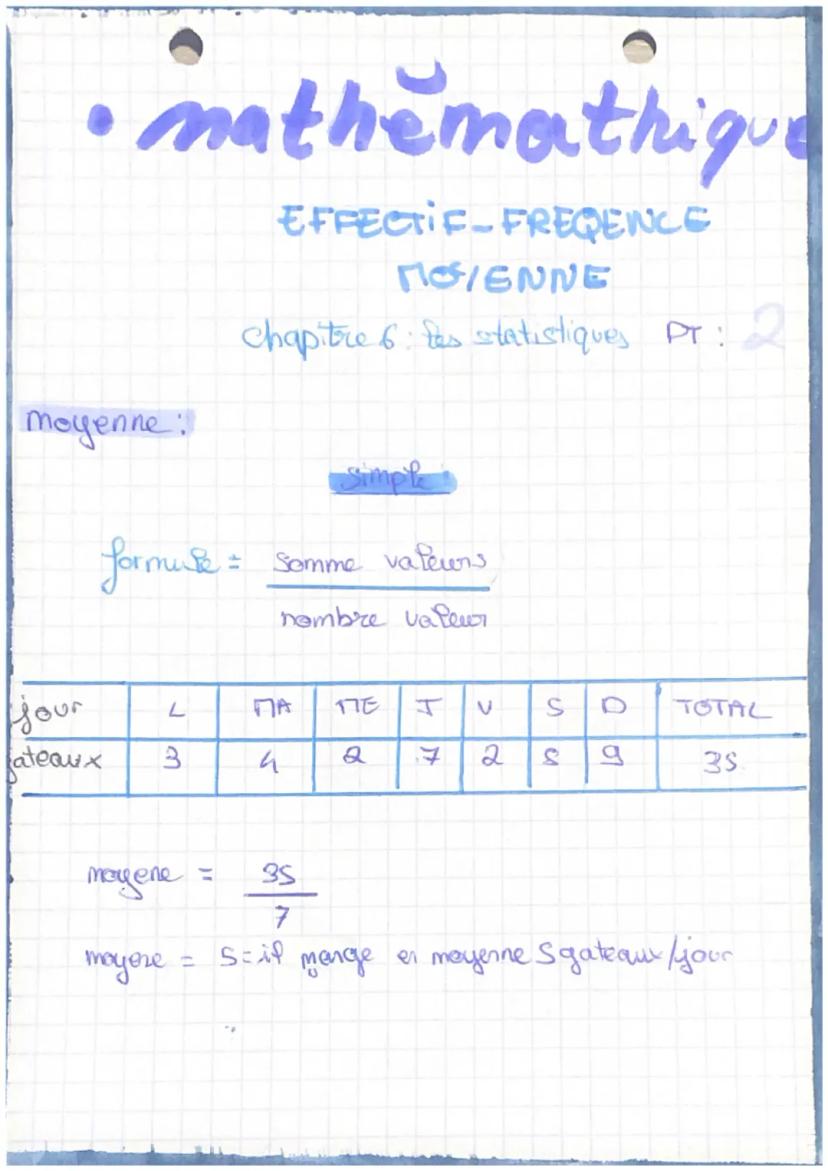 • mathématique
EFFECTIF-FREQENCE
MOYENNE
chapitre 6 : les statistiques PT : 2
moyenne :
simple :
formule = somme valeurs
nombre valeur
jour L MA ME J V S D TOTAL
gateaux 3 4 2 7 2 8 9 35
moyene = 35
7
moyene = 5 = il mange en moyenne 5 gateaux/jour